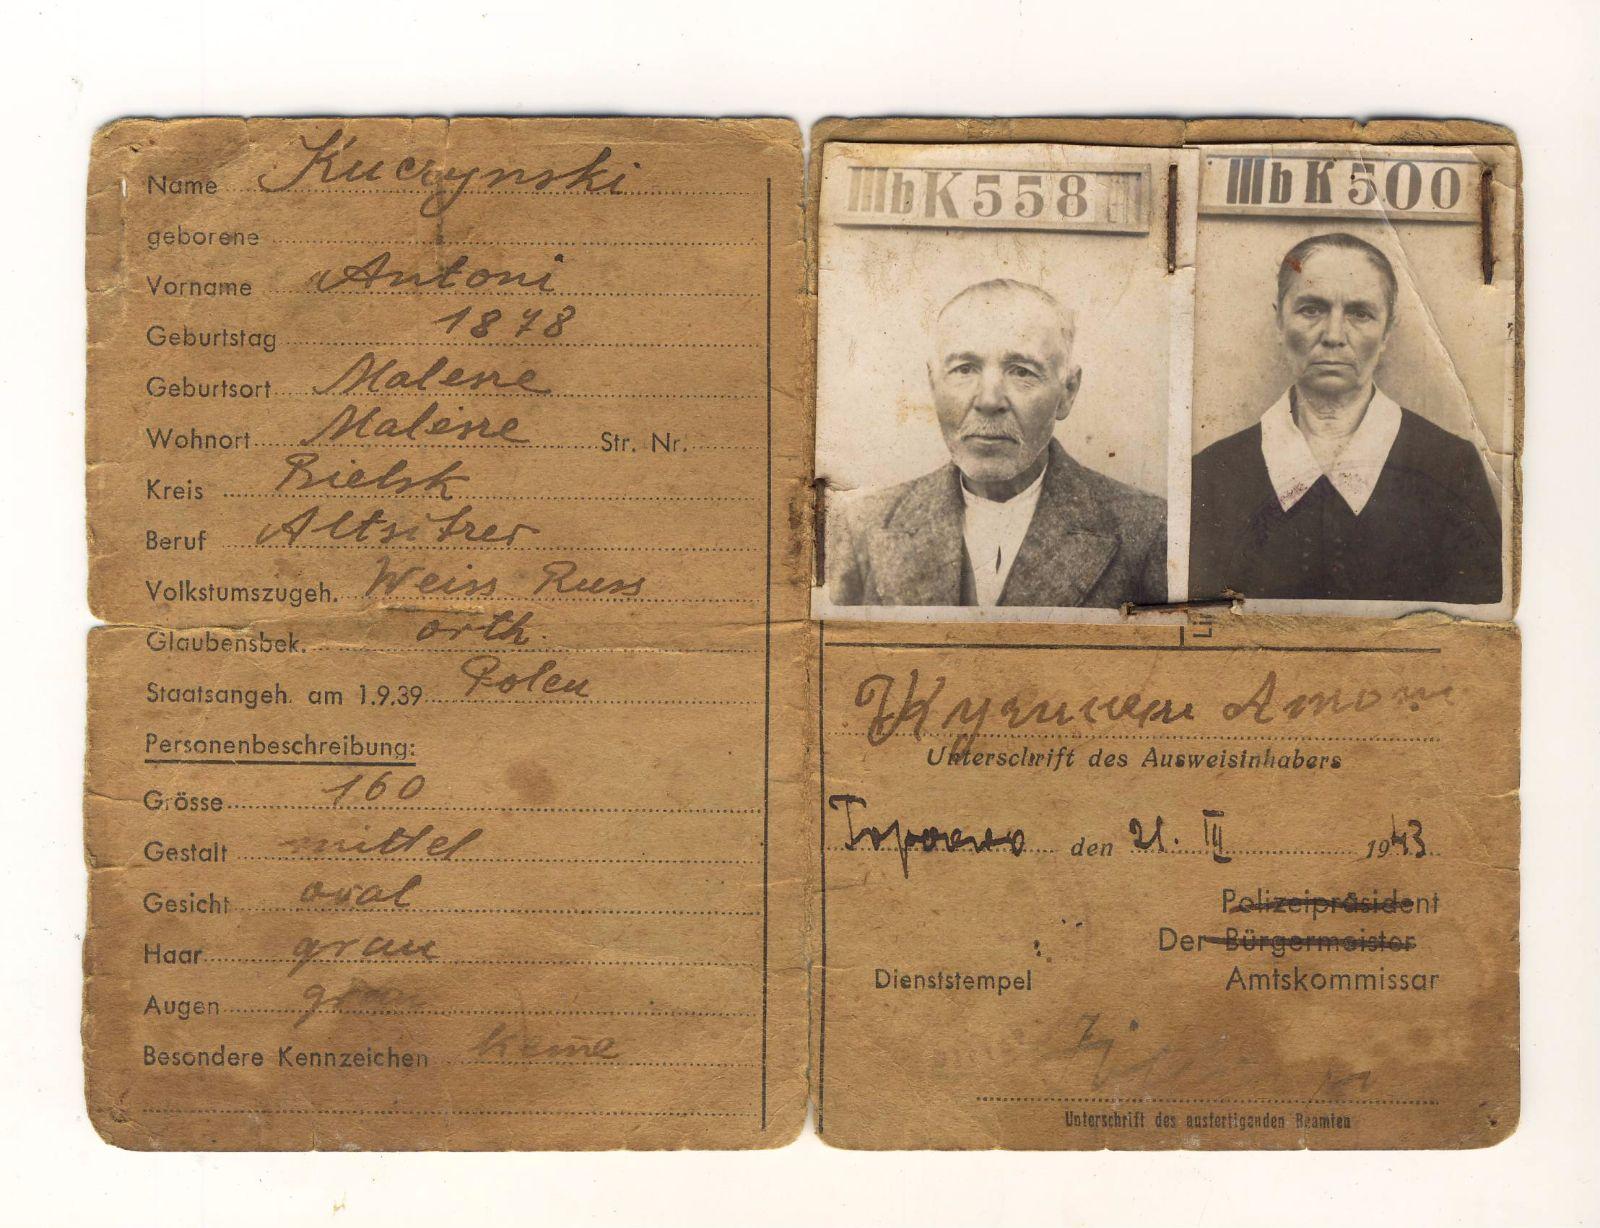 Name Kuczynski
geborene
Vorname Antoni
Geburtstag 1878
Geburtsort Malesze
Wohnort Malesze Str. Nr.
Kreis Bielsk
Beruf Altsitzer
Volkstumszugeh. Weiss Russ
Glaubensbek. orth.
Staatsangeh. am 1.9.39 Polen
Personenbeschreibung:
Grösse 160
Gestalt mittel
Gesicht oval
Haar grau
Augen grau
Besondere Kennzeichen keine
IIIbK558
IIIbK500
Li
Unterschrift des Ausweisinhabers
den 21. III 1943
Polizeipräsident
Der Bürgermeister
Dienststempel Amtskommissar
Unterschrift des ausfertigenden Beamten